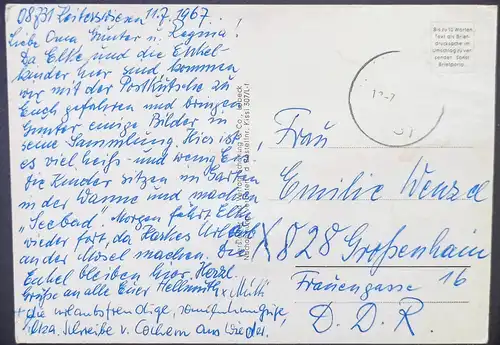 11.7.1967.
Liebe Oma Günter u. Regina!
Da Elke und die Enkel-
kinder hier sind kommen
wir mit der Postkutsche zu
Euch gefahren und bringen
Günter einige Bilder in
seine Sammlung. Hier ist
es viel heiß und wenig
die Kinder sitzen im Garten
in der Wanne und machen
„Seebad". Morgen fährt Elke
wieder fort, da Urlaub
an der Mosel machen. Die
Enkel bleiben hier. Herzl.
Grüße an alle Euer Hellmuth + Mutti
die urlaubsfreudige,
Schreibe v. Cochem aus wieder.
Bis zu 10 Worten
Text als Brief-
drucksache im
Umschlag zu ver-
senden. Sonst
Briefporto.
Frau
Emilie Wenzel
X 828 Großenhain
Frauengasse 16
D. D. R.